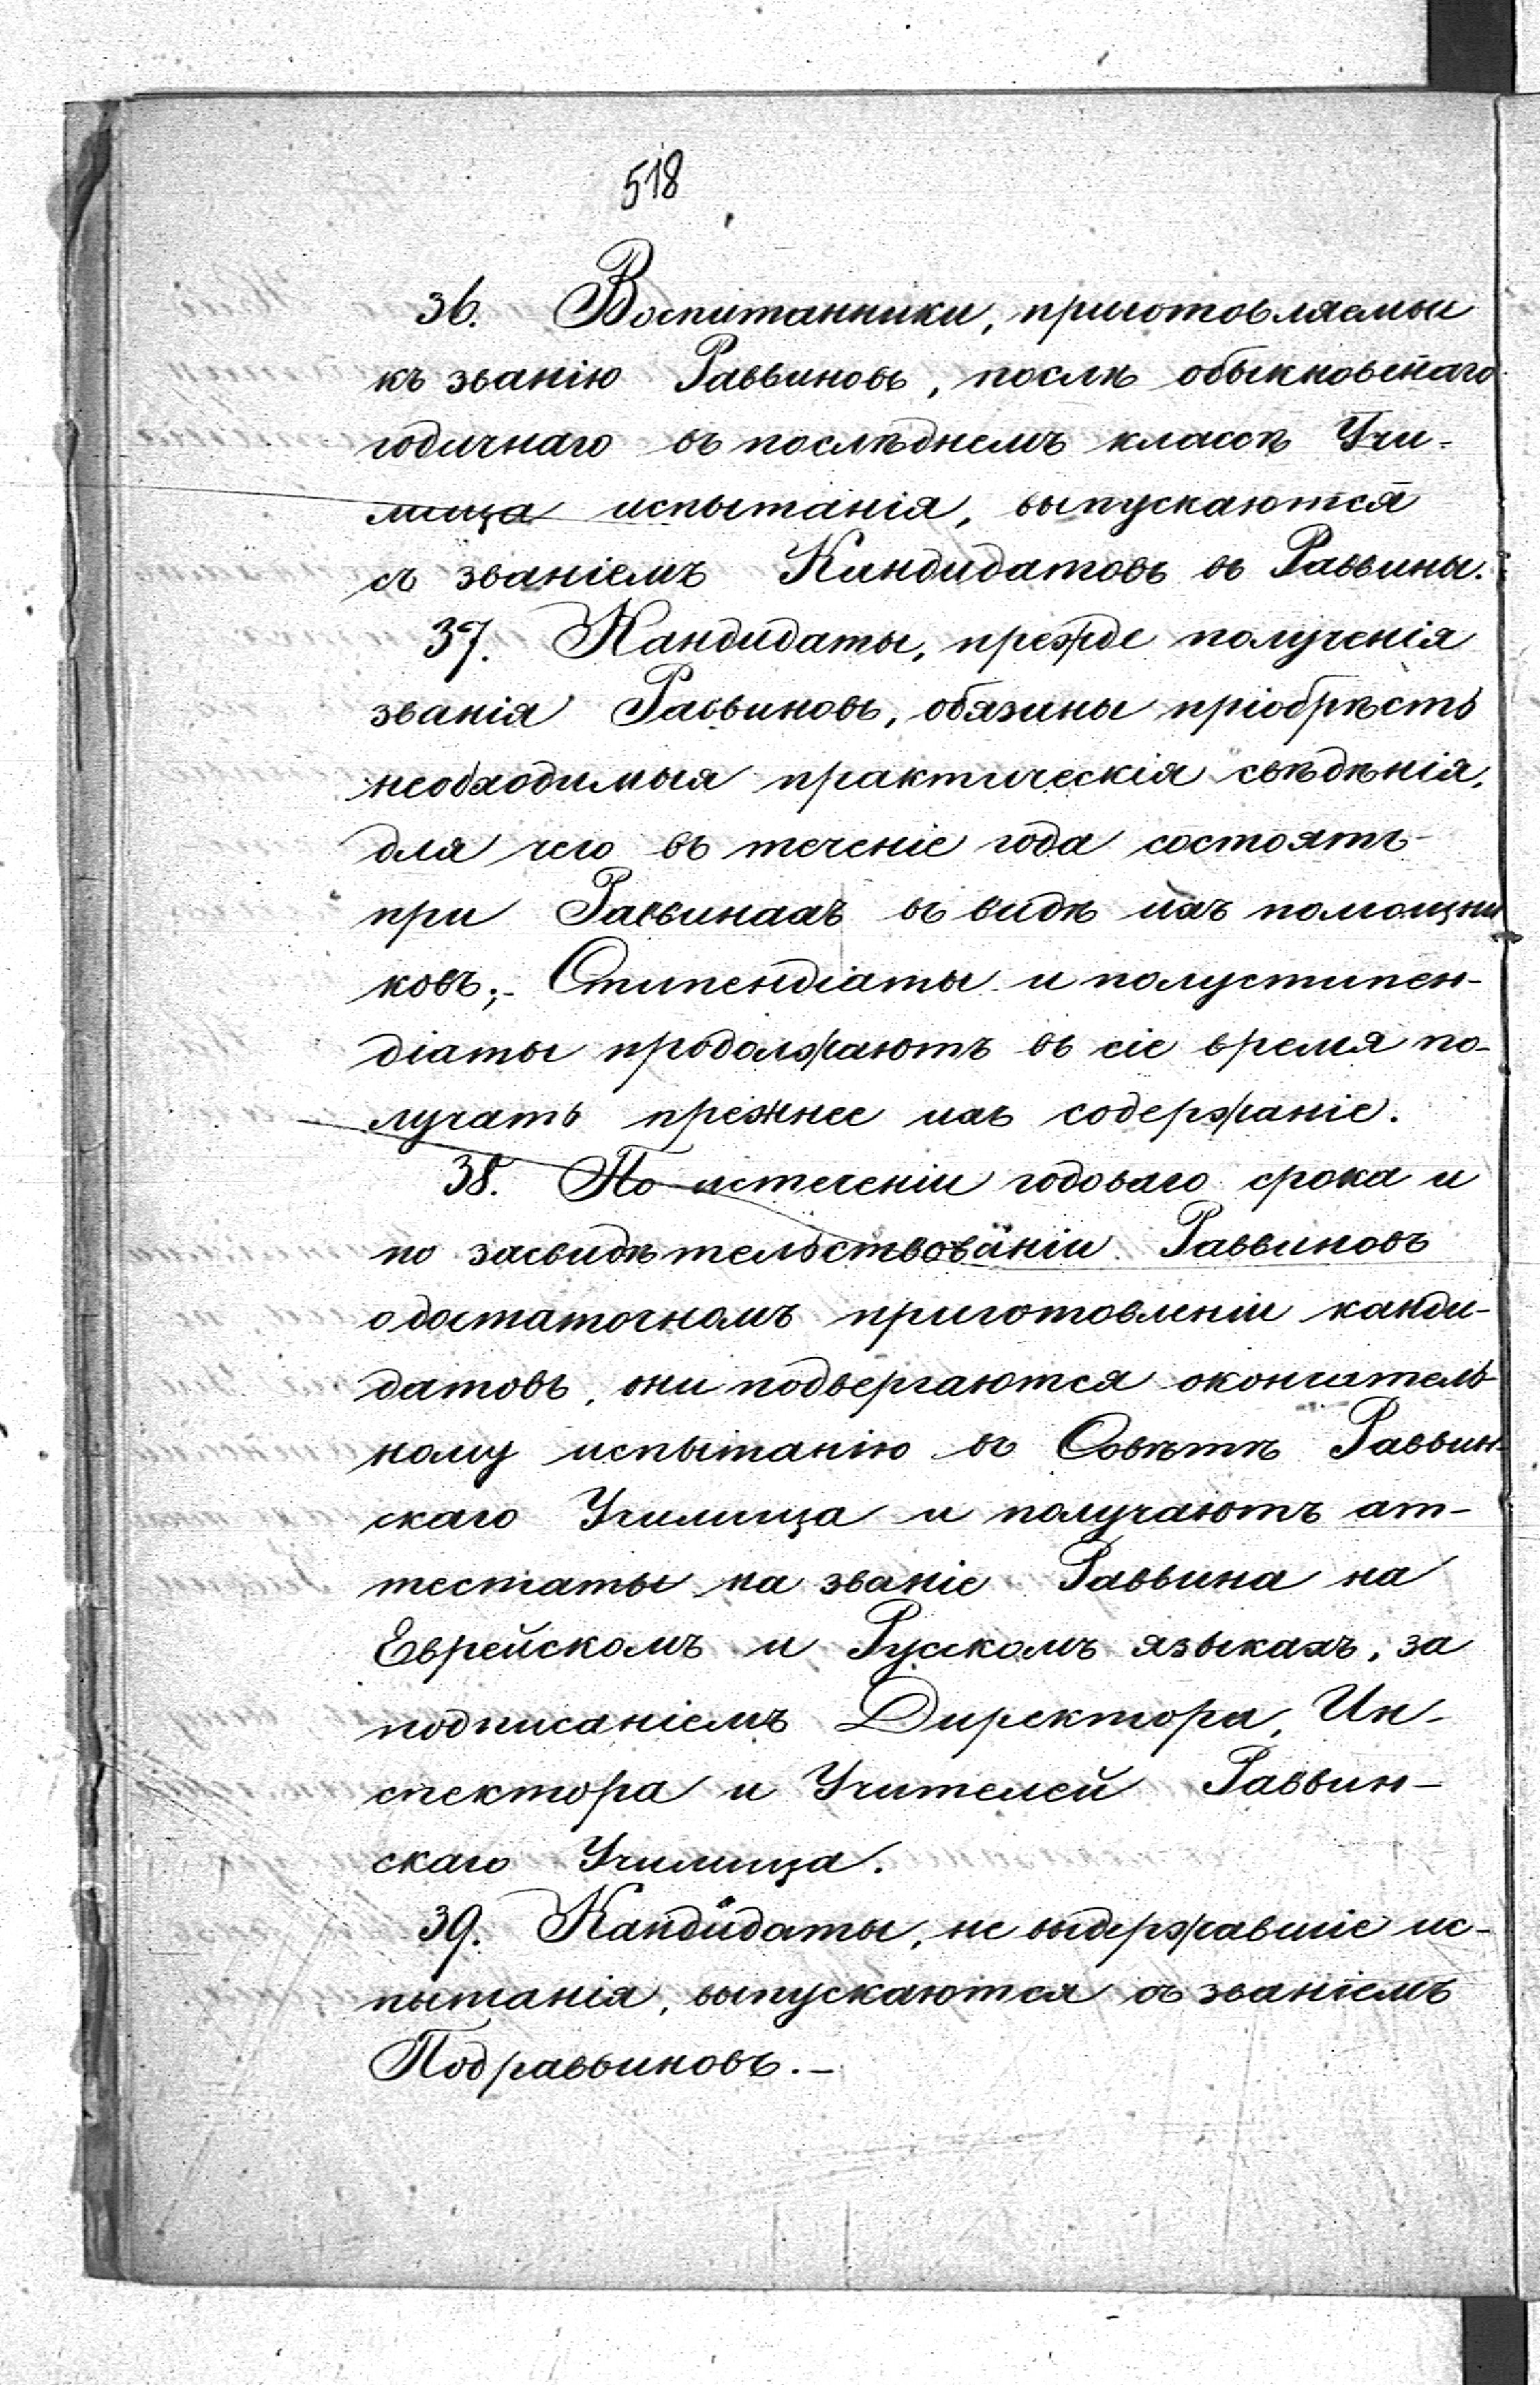 518
36. Воспитанники, приготовляемыи
къ званію Раввиновъ, послѣ обыкновеннаго
годичнаго въ послѣднемъ классѣ Учи-
лища испытанія, выпускаются
съ званіемъ Кандидатовъ въ Раввины.
37. Кандидаты, прежде полученія
званія Раввиновъ, обязаны пріобрѣсть
необходимыя практическія свѣдѣнія,
для чего въ теченіе года состоятъ
при Раввинахъ въ видѣ ихъ помощни
ковъ;- Стипендіаты и полустипен-
діаты продолжаютъ въ сіе время по-
лучать прежнее ихъ содержаніе.
38. По истеченіи годоваго срока и
по засвидѣтельствованіи Раввиновъ
о достаточномъ приготовленіи канди-
датовъ, они подвергаются окончатель-
ному испытанію въ Совѣтѣ Раввин-
скаго Училища и получаютъ ат-
тестаты на званіе Раввина на
Еврейскомъ и Русскомъ языкахъ, за
подписаніемъ Директора, Ин-
спектора и Учителей Раввин-
скаго Училища.
39. Кандидаты, не выдержавшіе ис-
пытанія, выпускаются съ званіемъ
Подраввиновъ.-